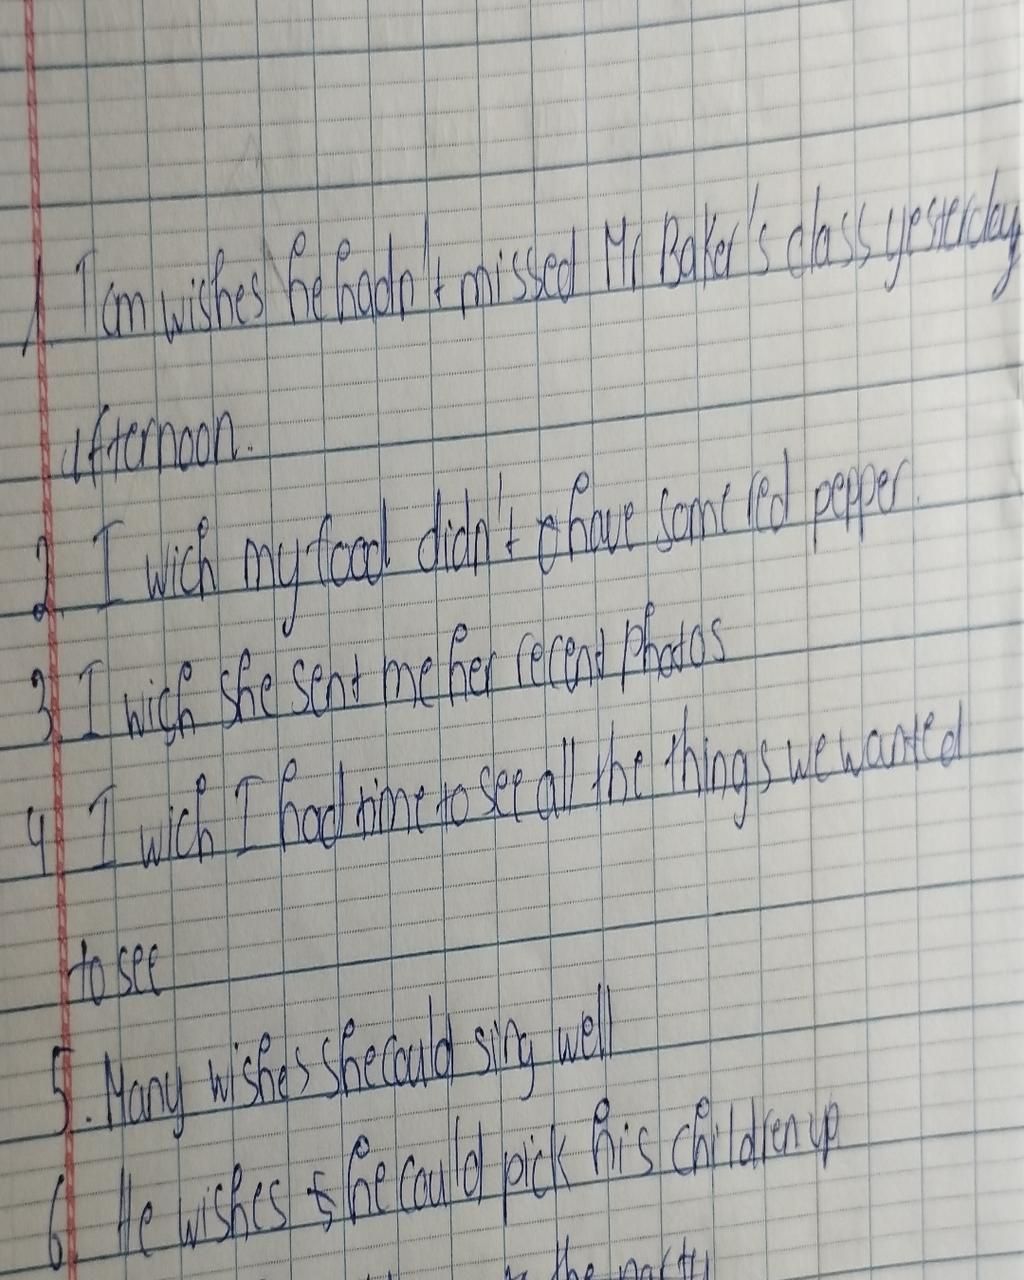 1. Tom wishes he hadn't missed Mr Baker's class yesterday
afternoon.
2. I wich my food didn't have some red pepper.
3. I wich she sent me her recent photos
4. I wich I had time to see all the things we wanted
to see
5. Many wishes she could sing well
6. He wishes he could pick his children up
the party